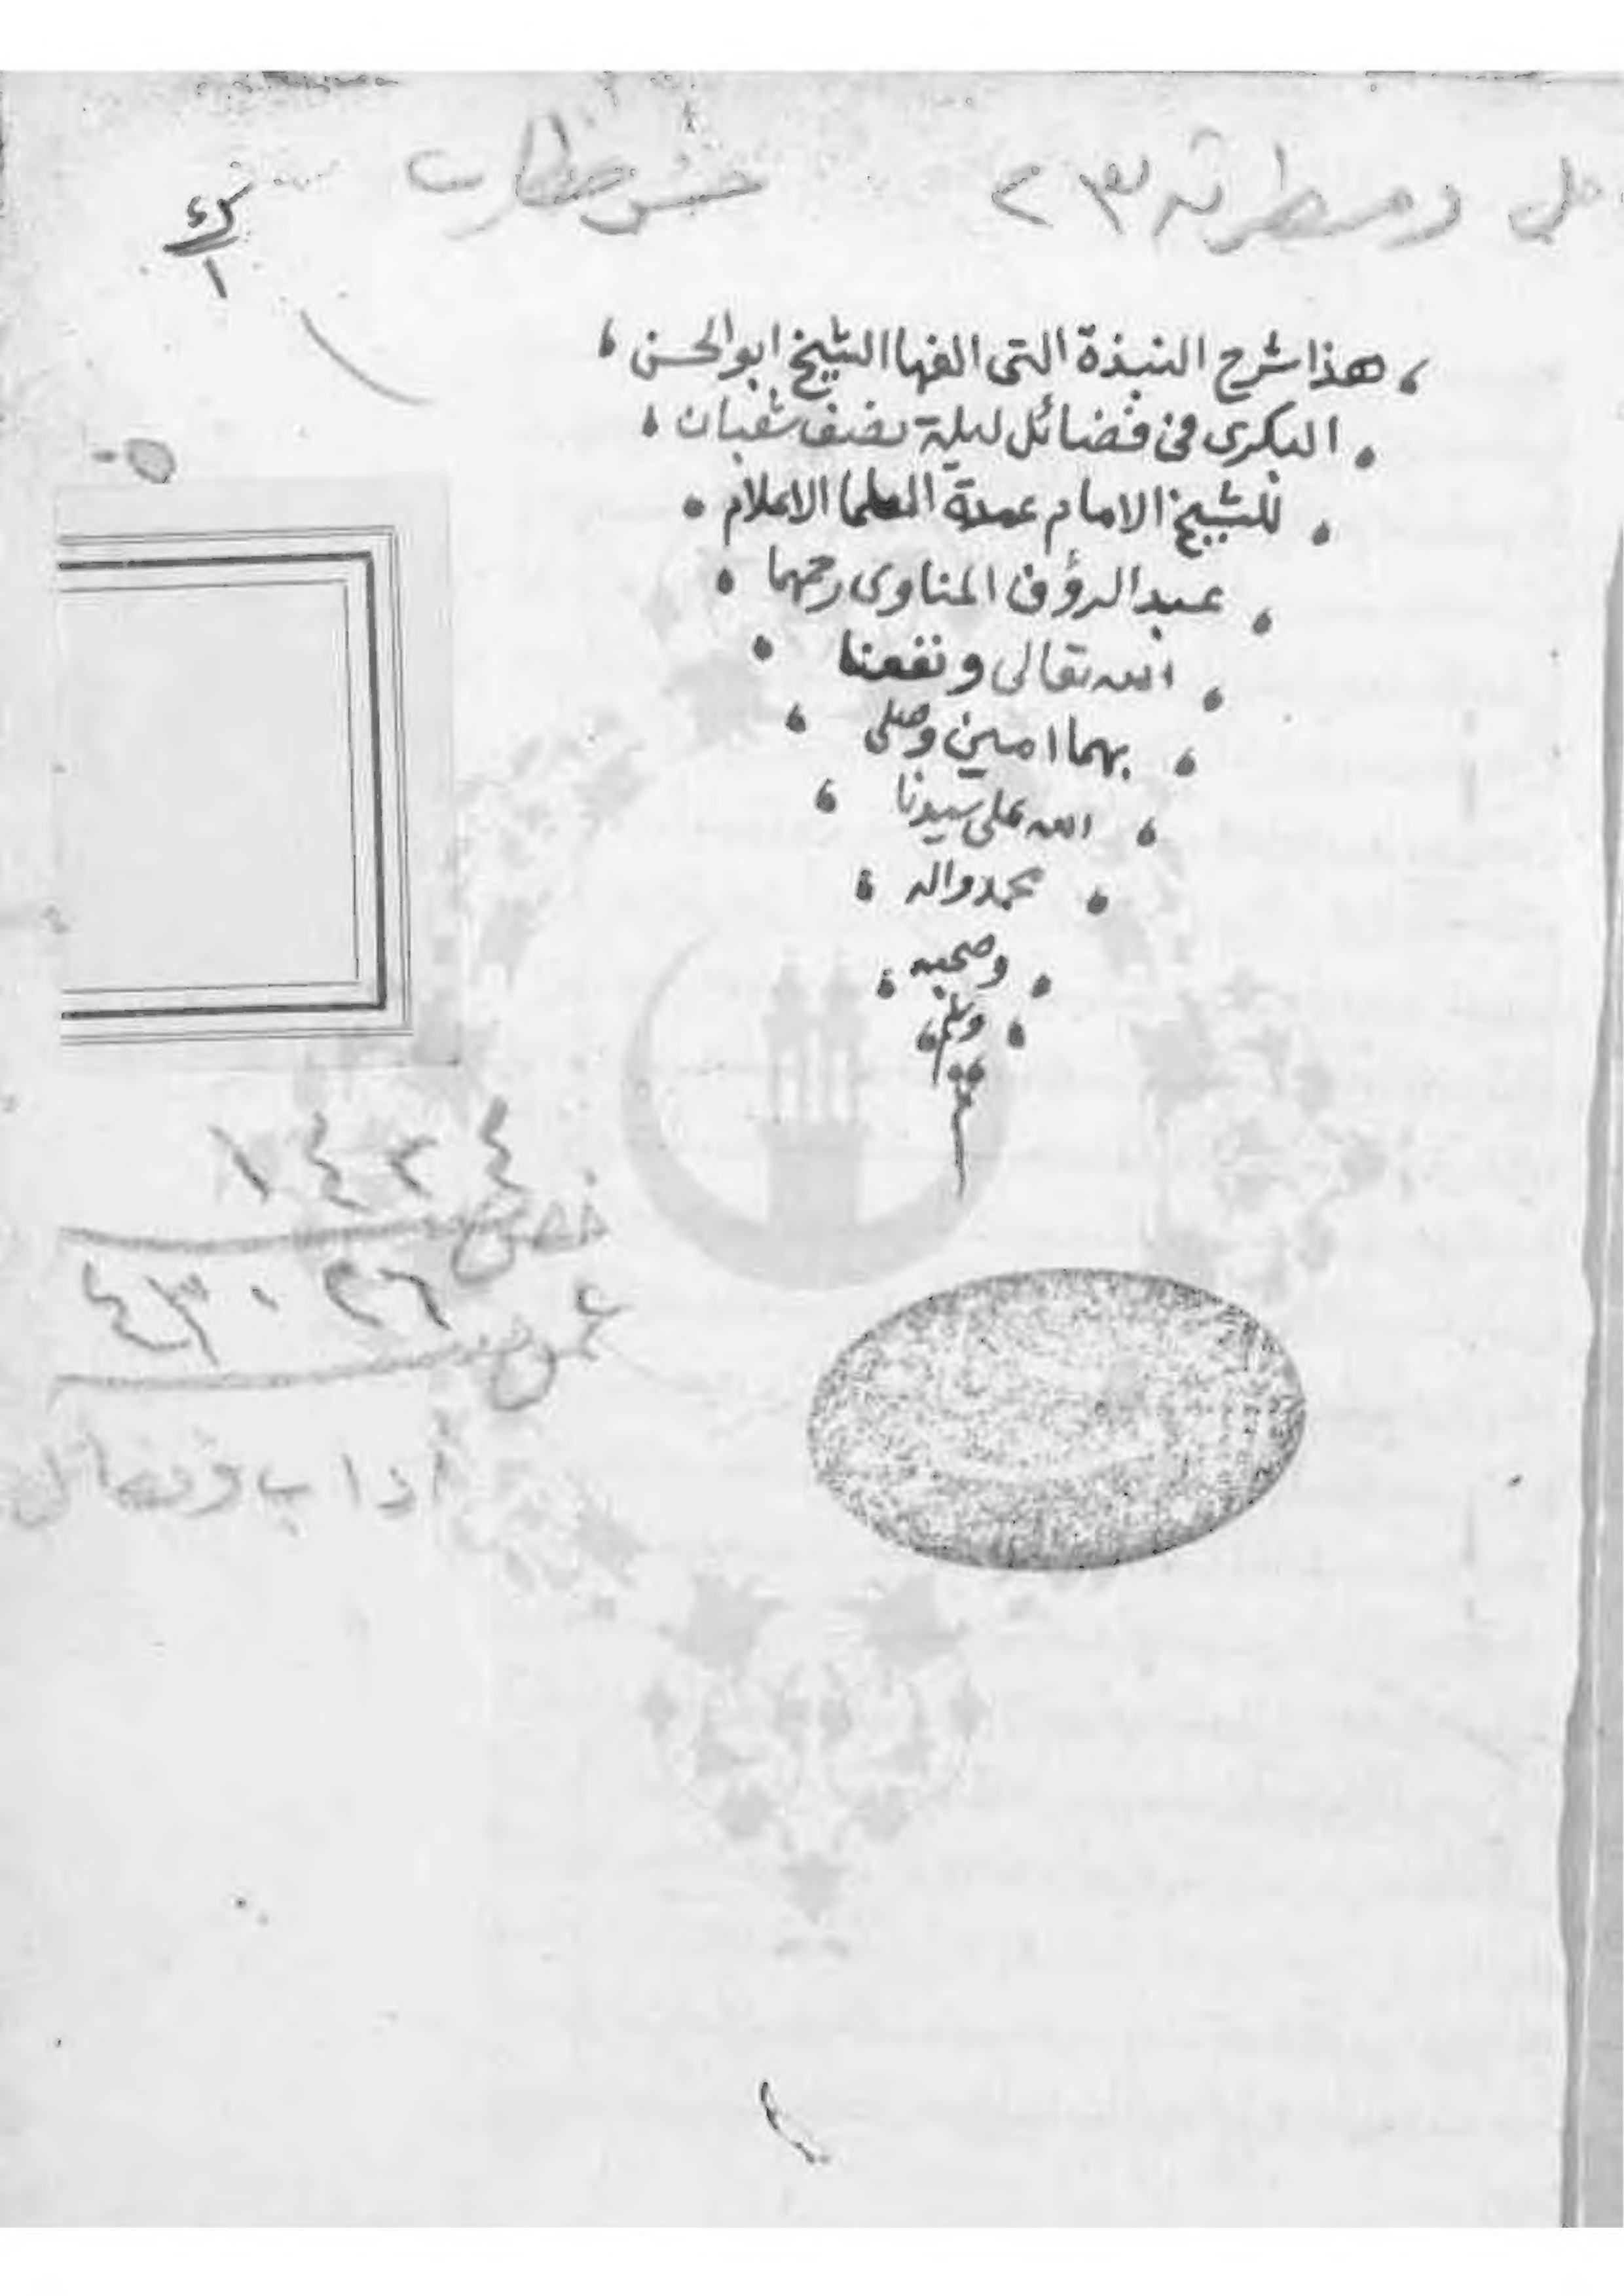 ومسطرته ٢٣
١
هذا شرح النبذة التى الفها الشيخ ابو الحسن
البكرى فى فضائل ليلة نصف شعبان
للشيخ الامام عمدة العلما الاعلام
عبد الرؤف المناوى رحمهما
الله تعالى ونفعنا
بهما امين وصلى
الله على سيدنا
محمد واله
وصحبه
وسلم
م
١٤٢٤
خصوص
٤٣٠٢٦
عموم
اداب وفضائل